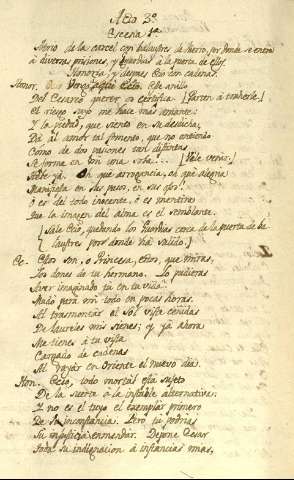 Acto 3º
Escena 1ª
Atrio de la carcel con balaustres de hierro, por donde se entra
à diversas prisiones, y guardias à la puerta de ellas.
Honoria, y despues Ecio con cadenas.
Honor. Ecio. Este anillo
Del Cesareo querer os certifica [Parten à traherle.]
El riesgo suyo me hace mas amante:
Y la piedad, que siento en su desdicha,
Dà al amor tal fomento, que no entiendo
Como de dos pasiones tan distintas
Se forma en fin una sola... [Vale venir.]
Hele ya. Oh que arrogancia, oh que alegria
Manifiesta en sus pasos, en sus ojos!
O es del todo inocente, ò es mentira
Que la imagen del alma es el semblante.
[Sale Ecio, quedando los Guardias cerca de la puerta de ba
laustres por donde ha salido.]
Ec. Estos son, o Princesa, estos, que miras,
Los dones de tu hermano. Lo pudieras
Aver imaginado tu en tu vida?
Mudò para mi todo en pocas horas.
Al trasmontar el Sol vistes ceñidas
De laureles mis sienes; y ya ahora
Me tienes à tu vista
Cargado de cadenas
Al rayar en Oriente el nuevo dia.
Hon. Ecio, todo mortal està sujeto
De la suerte à la instable alternativa:
Y no es el tuyo el exemplar primero
De su inconstancia. Pero tu podrias
Su injusticia enmendar. Depone Cesar
Toda su indignacion à instancias mias,